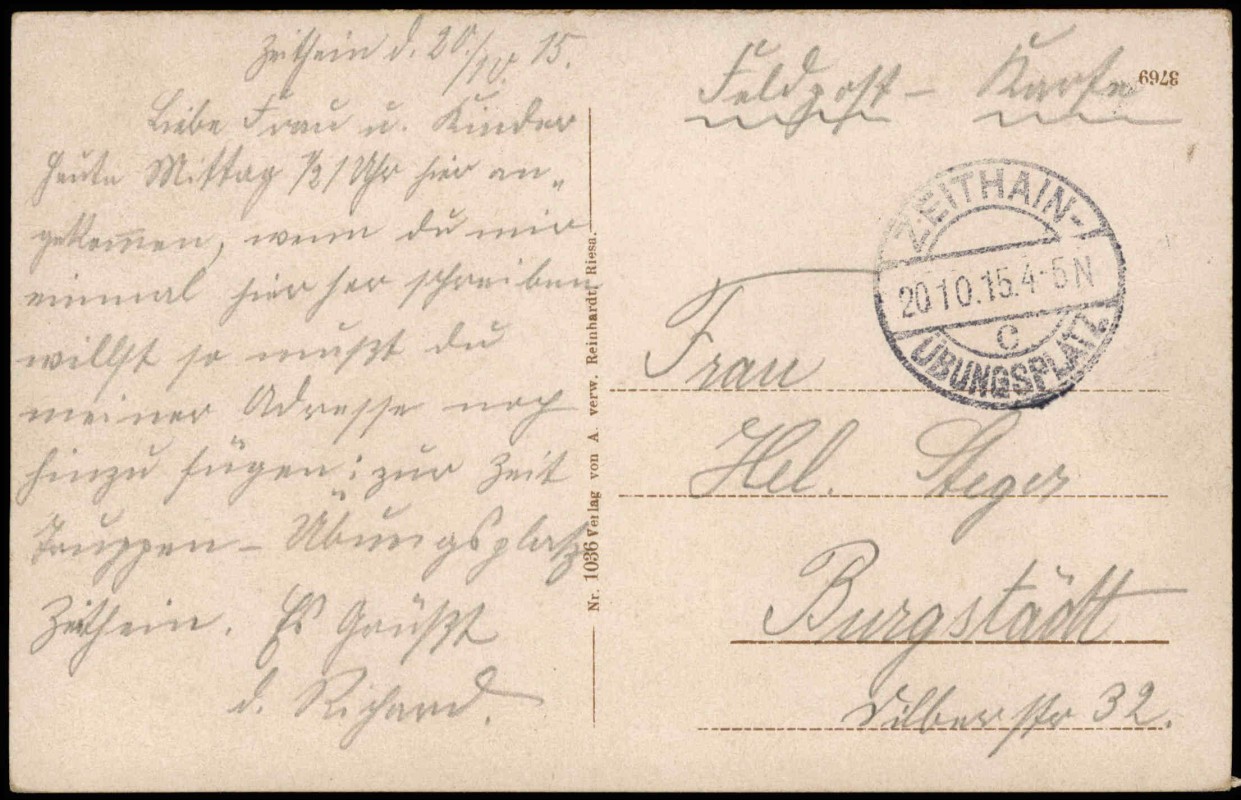 Zeithein d. 20./10. 15.
Liebe Frau u. Kinder
Heute Mittag 1/2 1 Uhr hier an„
gekom̅en, wenn du mir
einmal hier her schreiben
willst so mußt du
meiner Adresse noch
hinzu fügen: zur Zeit
Truppen- Übungsplatz
Zeithein. Es Grüßt
d. Richard.
Nr. 1036 Verlag von A. verw. Reinhardt, Riesa.
Feldpost- Karte
3769
ZEITHAIN-
20.10.15.4-5N
c
ÜBUNGSPLATZ
Frau
Hel. Steger
Burgstädt
Silberstr 32.